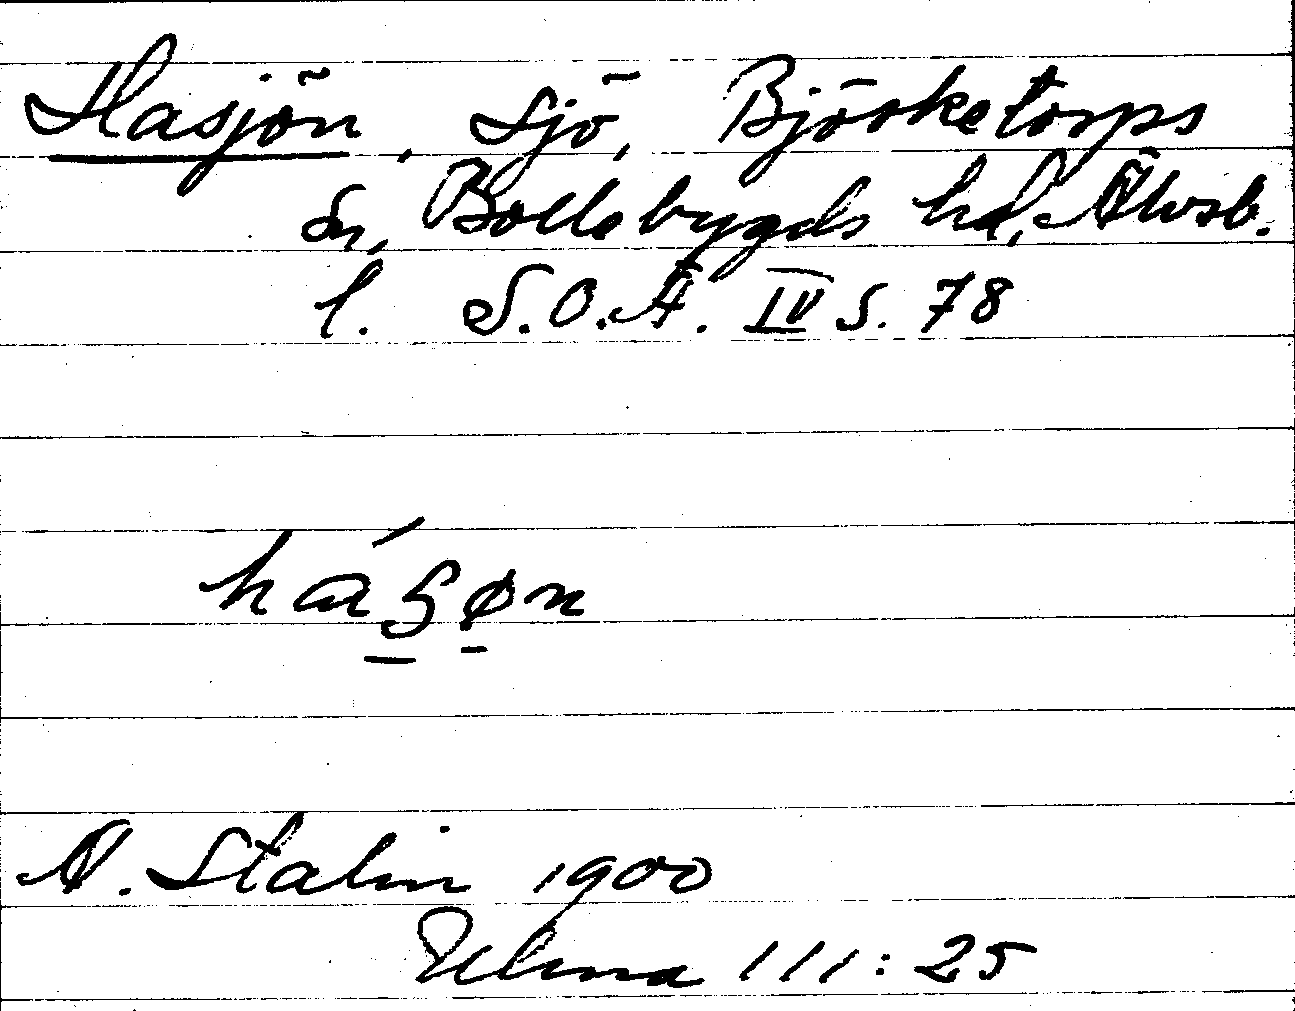 Hasjön, sjö, Björketorps
sn, Bollebygds hd, Älvsb.
l. S.O.Ä. IV s. 78
há̱ʂø̱n
A. Stalin 1900
Ulma 111:25